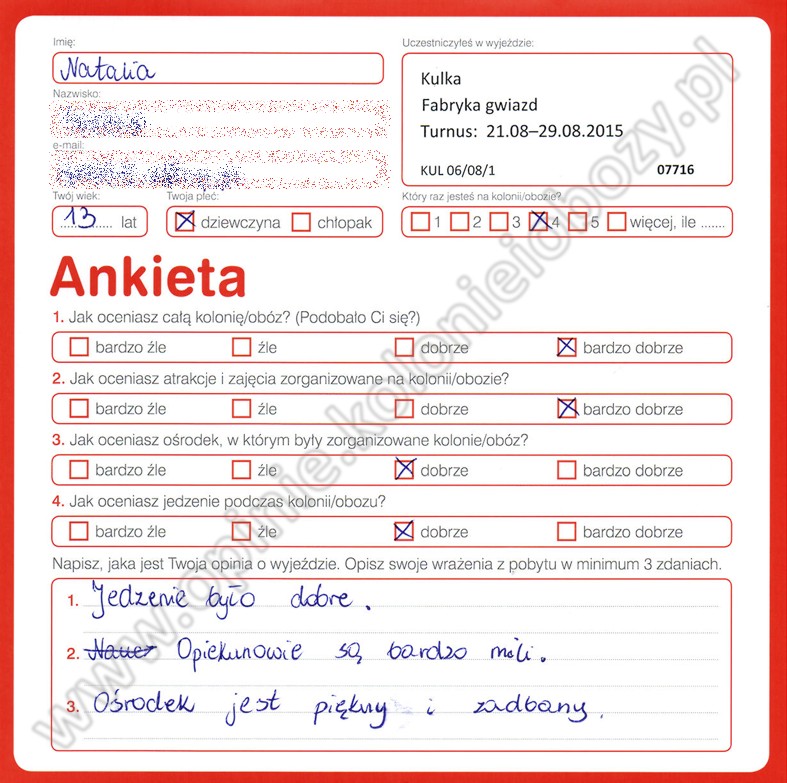 Imię:
Uczestniczyłeś w wyjeździe:
Natalia
Kulka
Fabryka gwiazd
Turnus: 21.08–29.08.2015
KUL 06/08/1 07716
Nazwisko:
e-mail:
Twój wiek: Twoja płeć: Który raz jesteś na kolonii/obozie?
13 lat dziewczyna chłopak 1 2 3 4 5 więcej, ile .......
Ankieta
1. Jak oceniasz całą kolonię/obóz? (Podobało Ci się?)
bardzo źle źle dobrze bardzo dobrze
2. Jak oceniasz atrakcje i zajęcia zorganizowane na kolonii/obozie?
bardzo źle źle dobrze bardzo dobrze
3. Jak oceniasz ośrodek, w którym były zorganizowane kolonie/obóz?
bardzo źle źle dobrze bardzo dobrze
4. Jak oceniasz jedzenie podczas kolonii/obozu?
bardzo źle źle dobrze bardzo dobrze
Napisz, jaka jest Twoja opinia o wyjeździe. Opisz swoje wrażenia z pobytu w minimum 3 zdaniach.
1. Jedzenie było dobre.
2. Opiekunowie są bardzo mili.
3. Ośrodek jest piękny i zadbany.
www.opinie.kolonieiobozy.pl